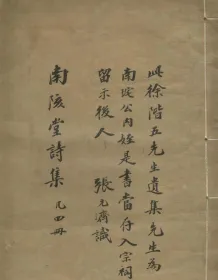 此徐階五先生遺集先生為
南垞公内姪是書當存入宗祠
留示後人　張元濟識
南陔堂詩集 凡四冊